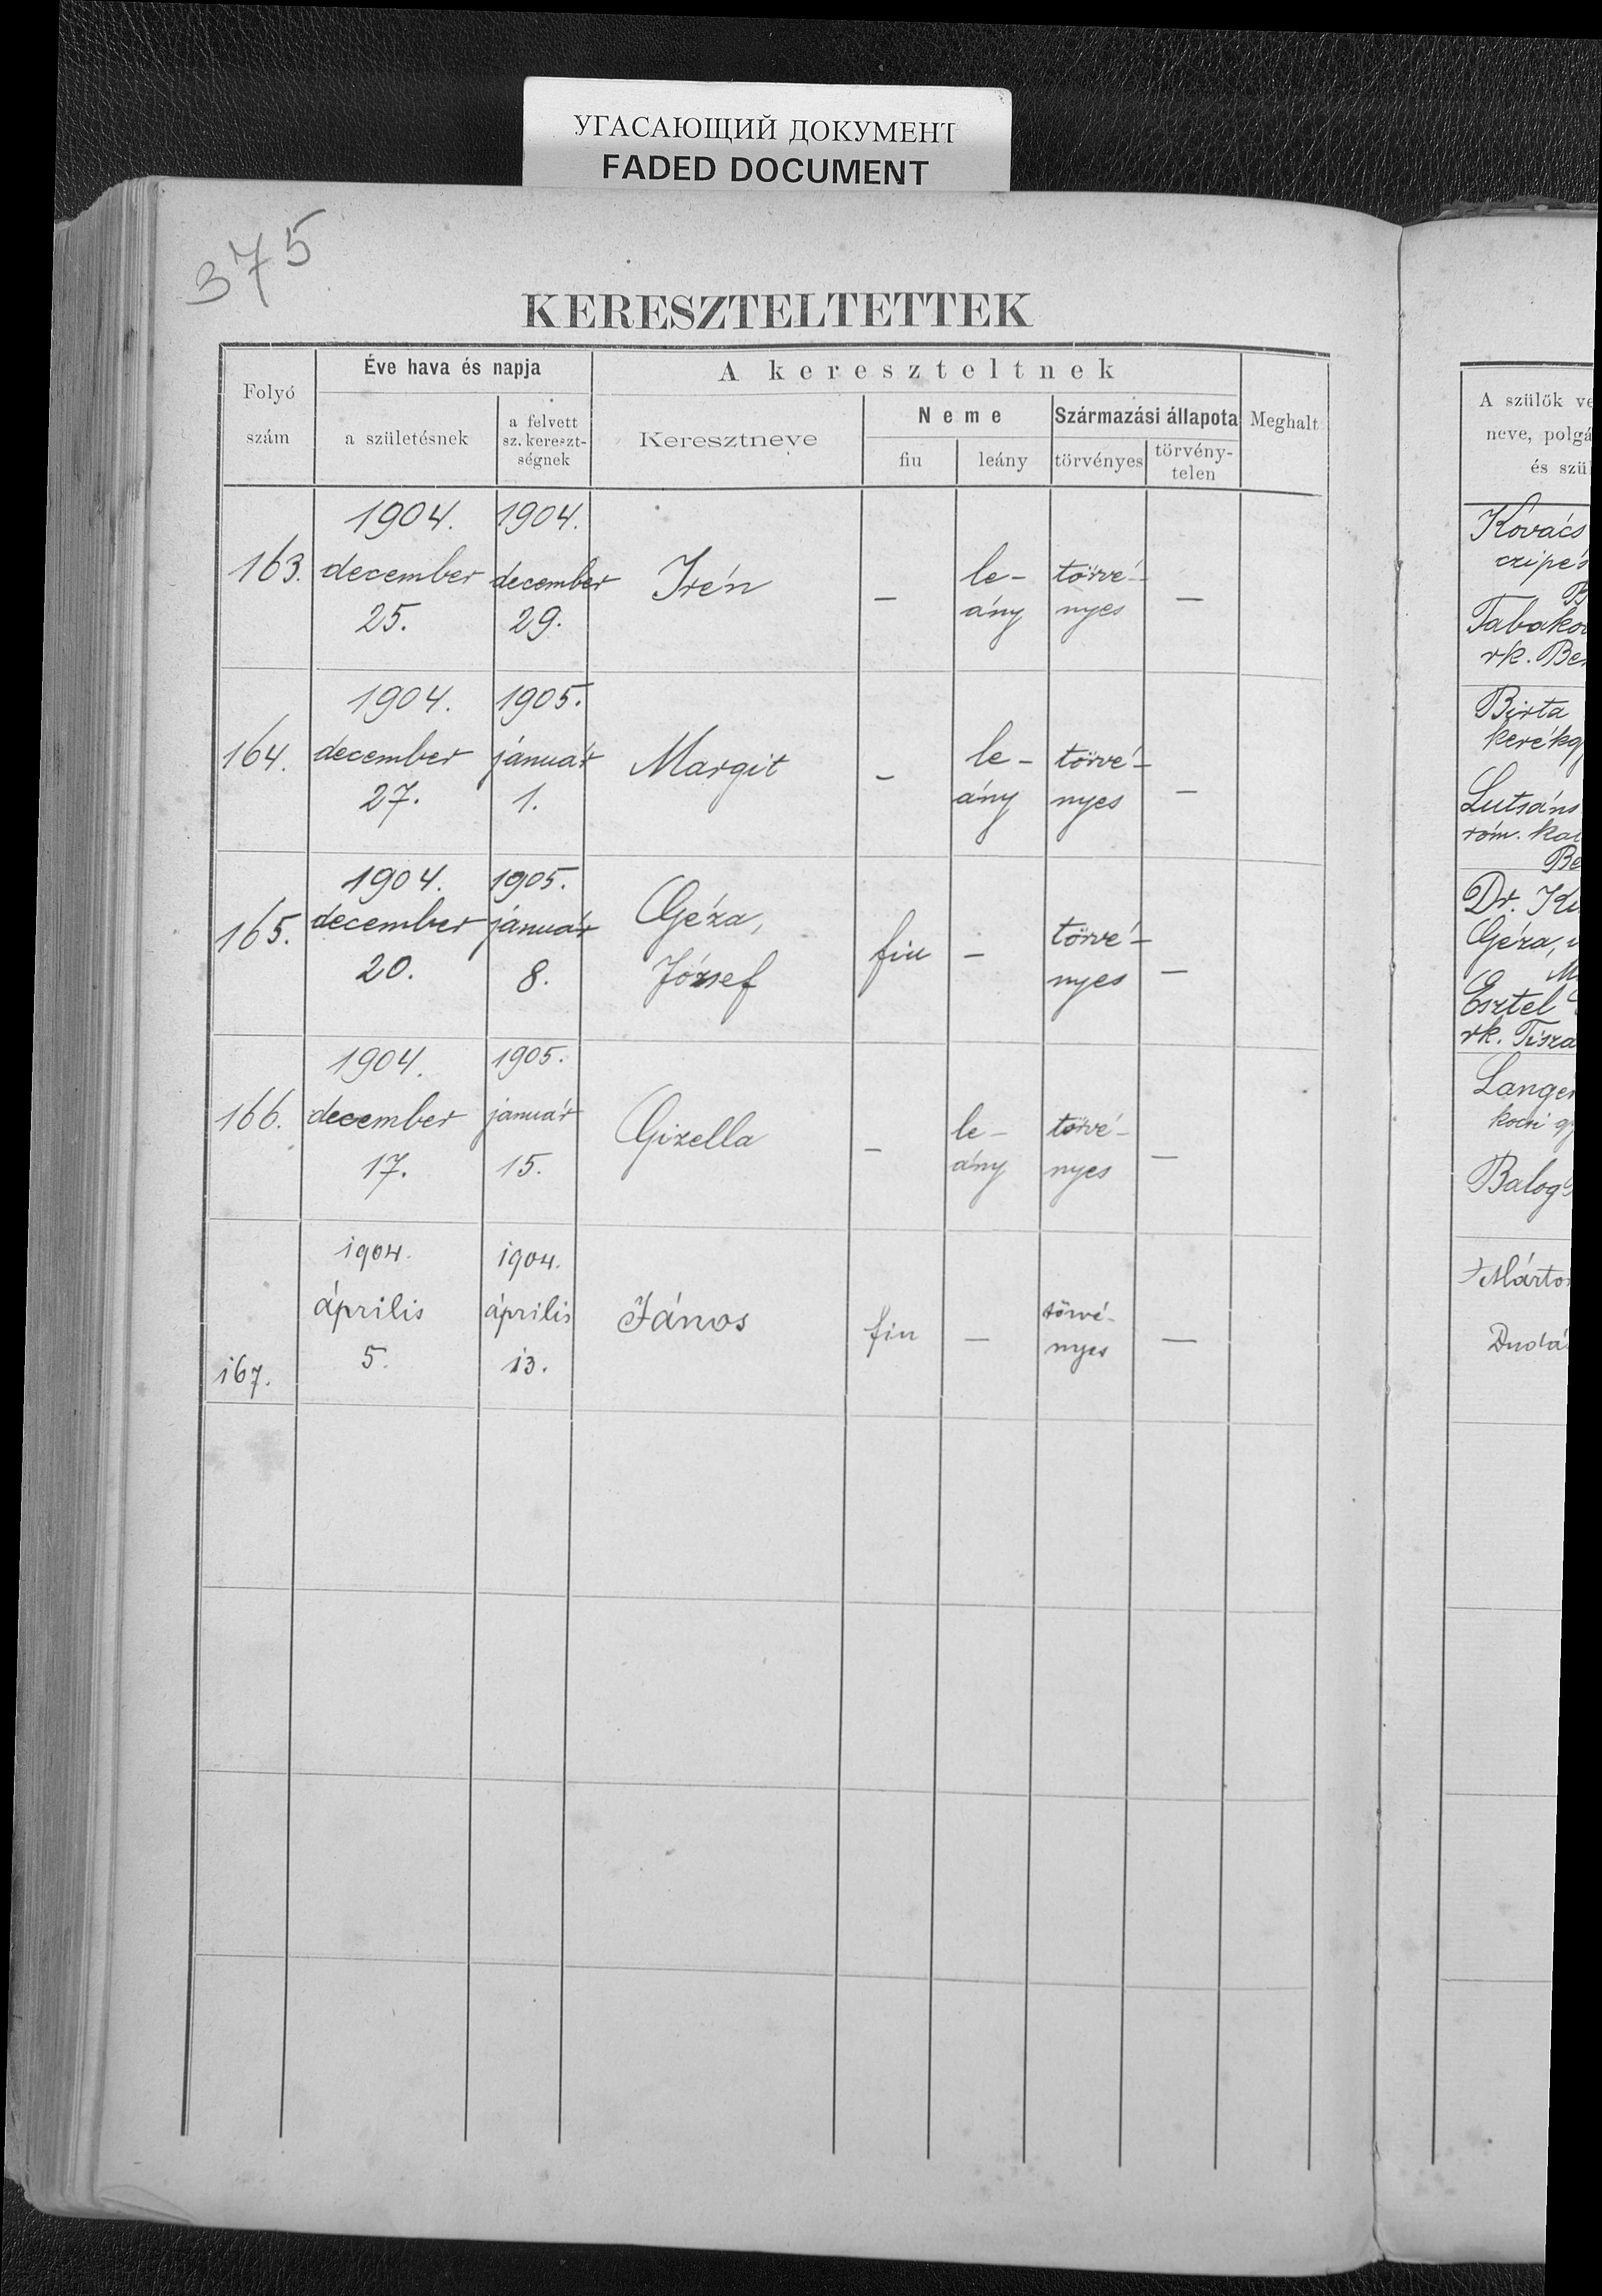 УГАСАЮЩИЙ ДОКУМЕНТ
FADED DOCUMENT
375
KERESZTELTETTEK
Folyó szám
Éve hava és napja
a születésnek
a felvett sz. kereszt-ségnek
A kereszteltnek
Keresztneve
Neme
fiu
leány
Származási állapota
törvényes
törvény-telen
Meghalt
163.
1904. december 25.
1904. december 29.
Irén
—
le-ány
törvé-nyes
—
164.
1904. december 27.
1905. január 1.
Margit
—
le-ány
törvé-nyes
—
165.
1904. december 20.
1905. január 8.
Géza, József
fiu
—
törvé-nyes
—
166.
1904. december 17.
1905. január 15.
Gizella
—
le-ány
törvé-nyes
—
167.
1904. április 5.
1904. április 13.
János
fiu
—
törvé-nyes
—
A szülők ve
neve, polgá
és szü
Kovács
czipés
B
Tabako
rk. Be
Birta
kerékg
Lutsáns
róm. ka
Be
Dr. Ku
Géza,
M
Esztel
rk. Tisza
Langer
kocsi gy
Balog
Márto
Dudá